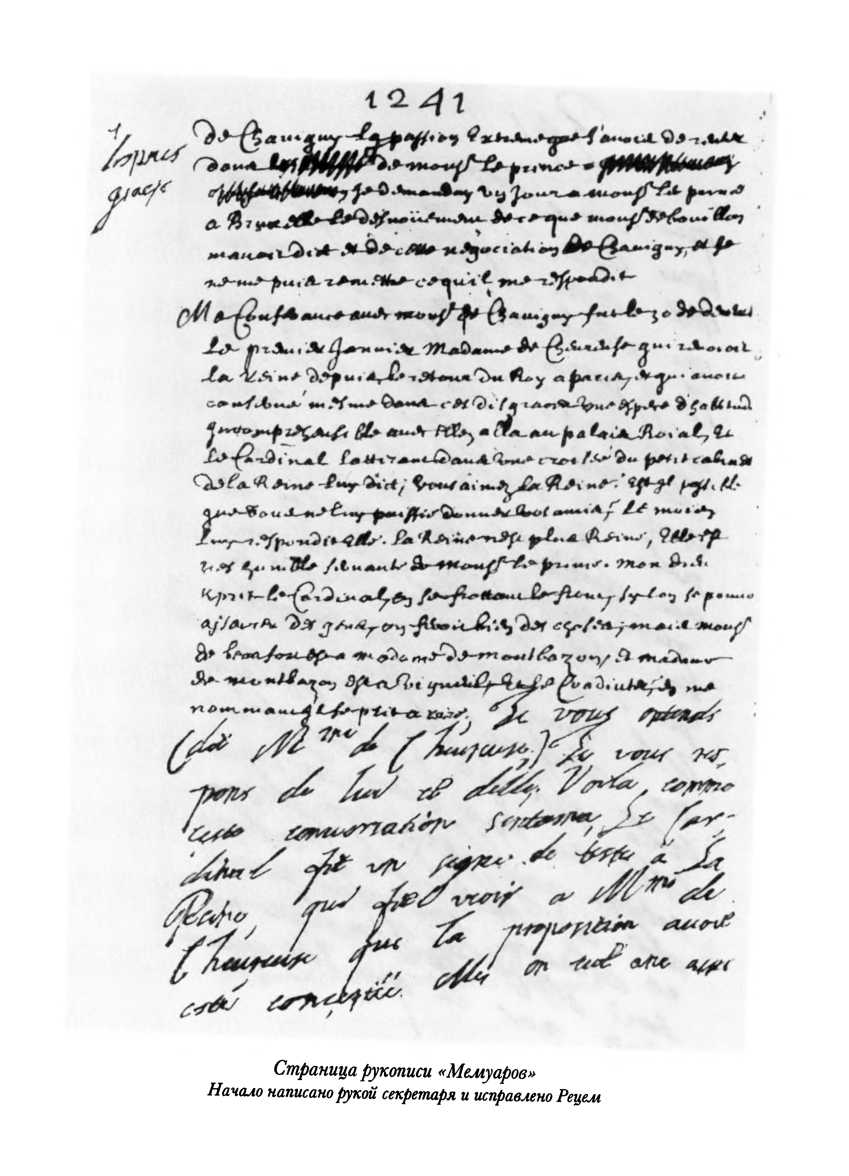 1241
de Chauigny la passion Extreme que l'auoit de rentrer
dans les de mons.r le prince
Je demanday vn Jour a mons.r le prince
a Bruxelle le desnoüement de ce que mons.r de bouillon
mauoit dict et de cette negociation de Chauigny, et Je
ne me puis remettre ce qu'il me respondit
Ma Conferance auec mons.r de Chauigny fut le 30 de
Le premier Januier Madame de Cheureuse qui reuoioit
la Reine depuis le retour du Roy a paris, et qui auoit
conserué mesme dans ces disgraces vne espece d'habitude
Incomprehensible auec Elle, alla au palais Roial, Et
Le Cardinal Lattirant dans vne croisée du petit cabinet
de la Reine luy dict, vous aimez la Reine. Est Il possible
que vous ne luy puissie donner vos amis? Le moien
luy respondit elle. la Reine nest plus Reine, Elle est
tres humble seruante de mons.r le prince. mon dieu
reprit le Cardinal, en se frottant le front, sy lon se pouuoit
assurer des gens, on feroit bien des choses, mais mons.r
de beaufort est a madame de montbazon, et madame
de montbazon est a vigneuil, Et le Coadiuteur, en me
nommant il se prit a rire, Je vous entends
(dit M.me de Cheureuse.) Je vous res-
pons de lui et delle. Voila comme
ceste conuersation sentama, Le Car-
dinal fit un signe de teste à la
Reine, qui fit veoir a M.me de
Cheureuse que la proposition auoit
esté concertée. Elle en eut une assé
Страница рукописи «Мемуаров»
Начало написано рукой секретаря и исправлено Рецем